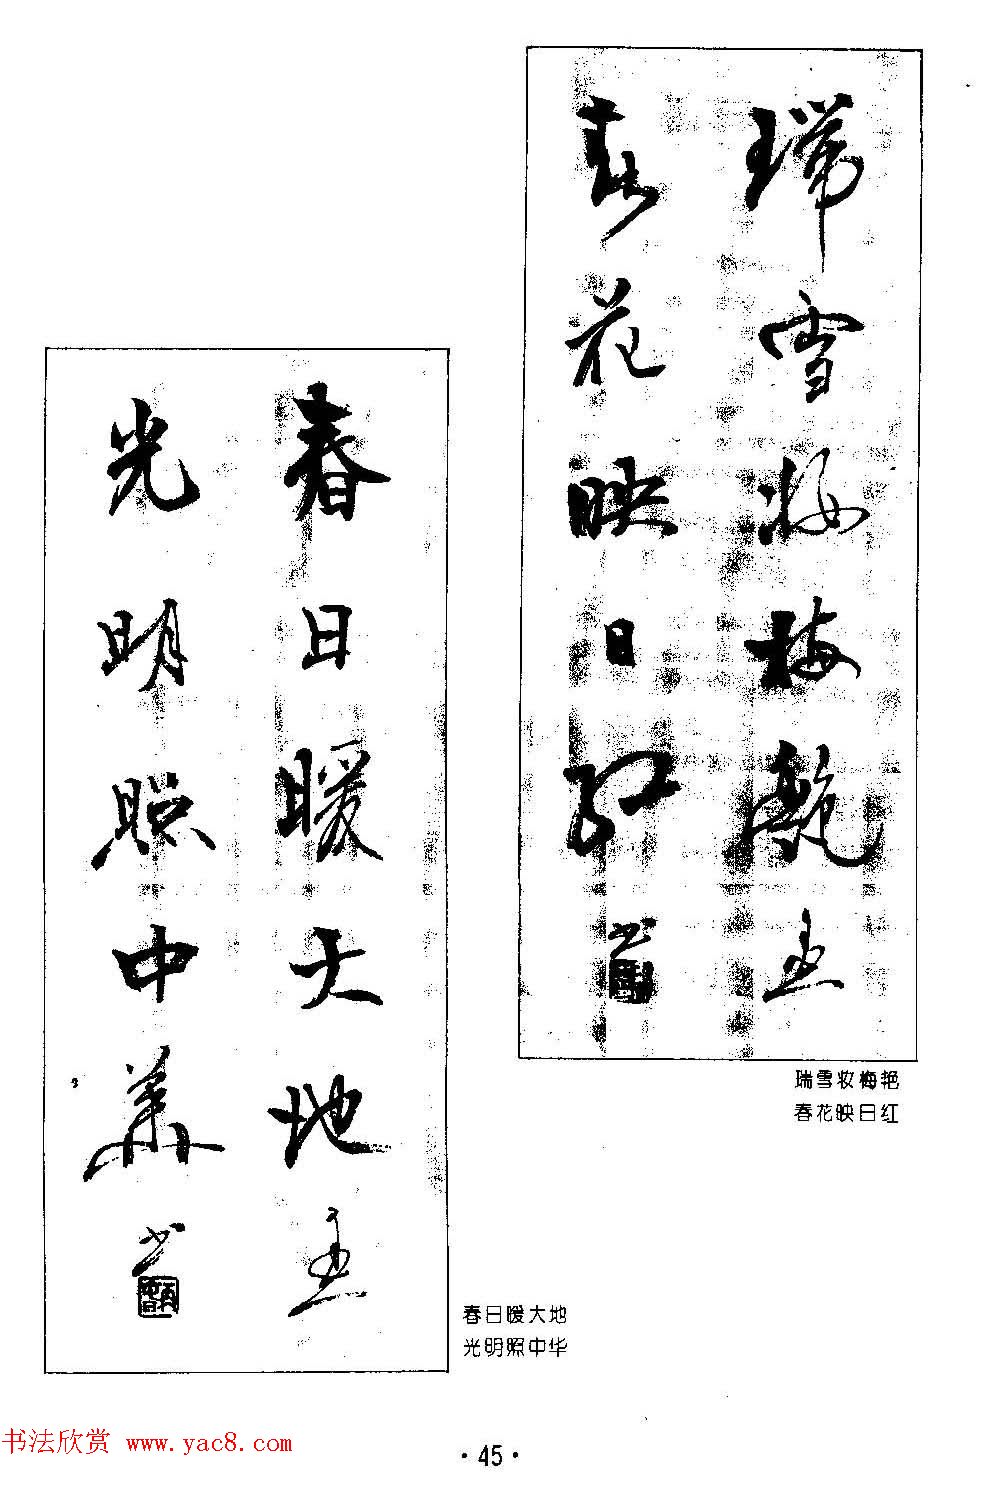 瑞雪妝梅艷
春花映日红
书
瑞雪妆梅艳
春花映日红
春日暖大地
光明照中華
书
春日暖大地
光明照中华
书法欣赏 www.yac8.com
·45·